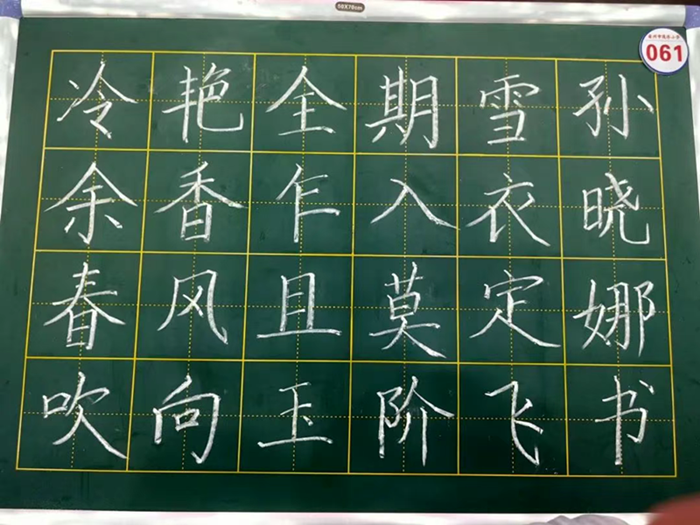 50X70cm
061
冷艳全期雪
余香乍入衣
春风且莫定
吹向玉阶飞
孙晓娜书